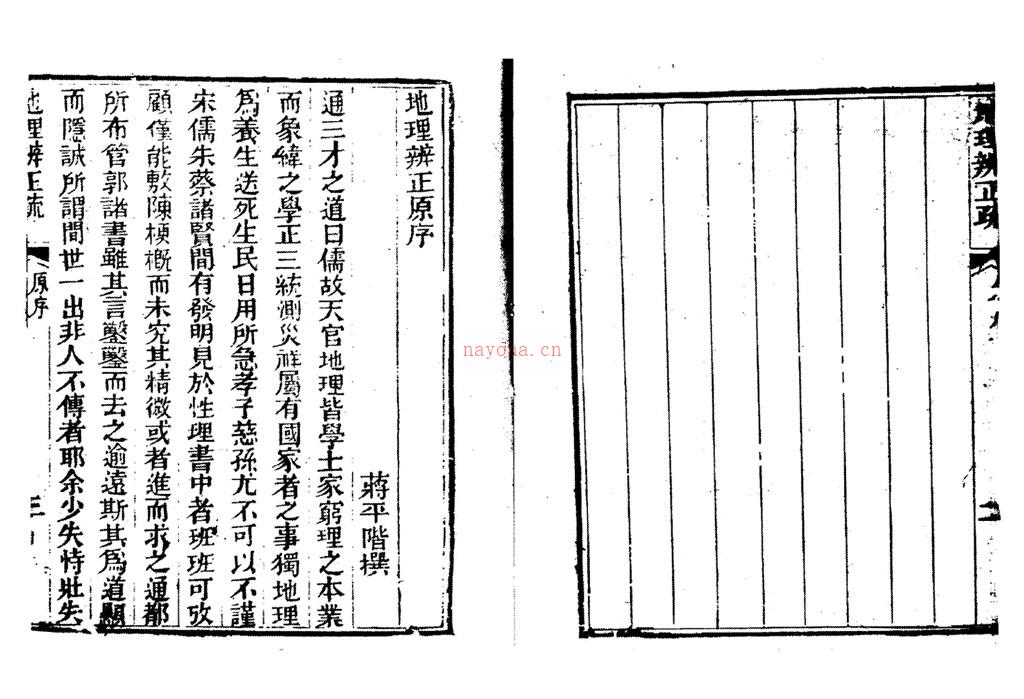 地理辨正疏
二
地理辨正原序
蔣平階撰
通三才之道曰儒故天官地理皆學士家窮理之本業
而象緯之學正三統測災祥屬有國家者之事獨地理
爲養生送死生民日用所急孝子慈孫尤不可以不謹
宋儒朱蔡諸賢間有發明見於性理書中者班班可攷
顧僅能敷陳梗概而未究其精微或者進而求之通都
所布管郭諸書雖其言鑿鑿而去之逾遠斯其爲道顯
而隱誠所謂間世一出非人不傳者耶余少失恃壯失
地理辨正疏
原序
三
nayona.cn